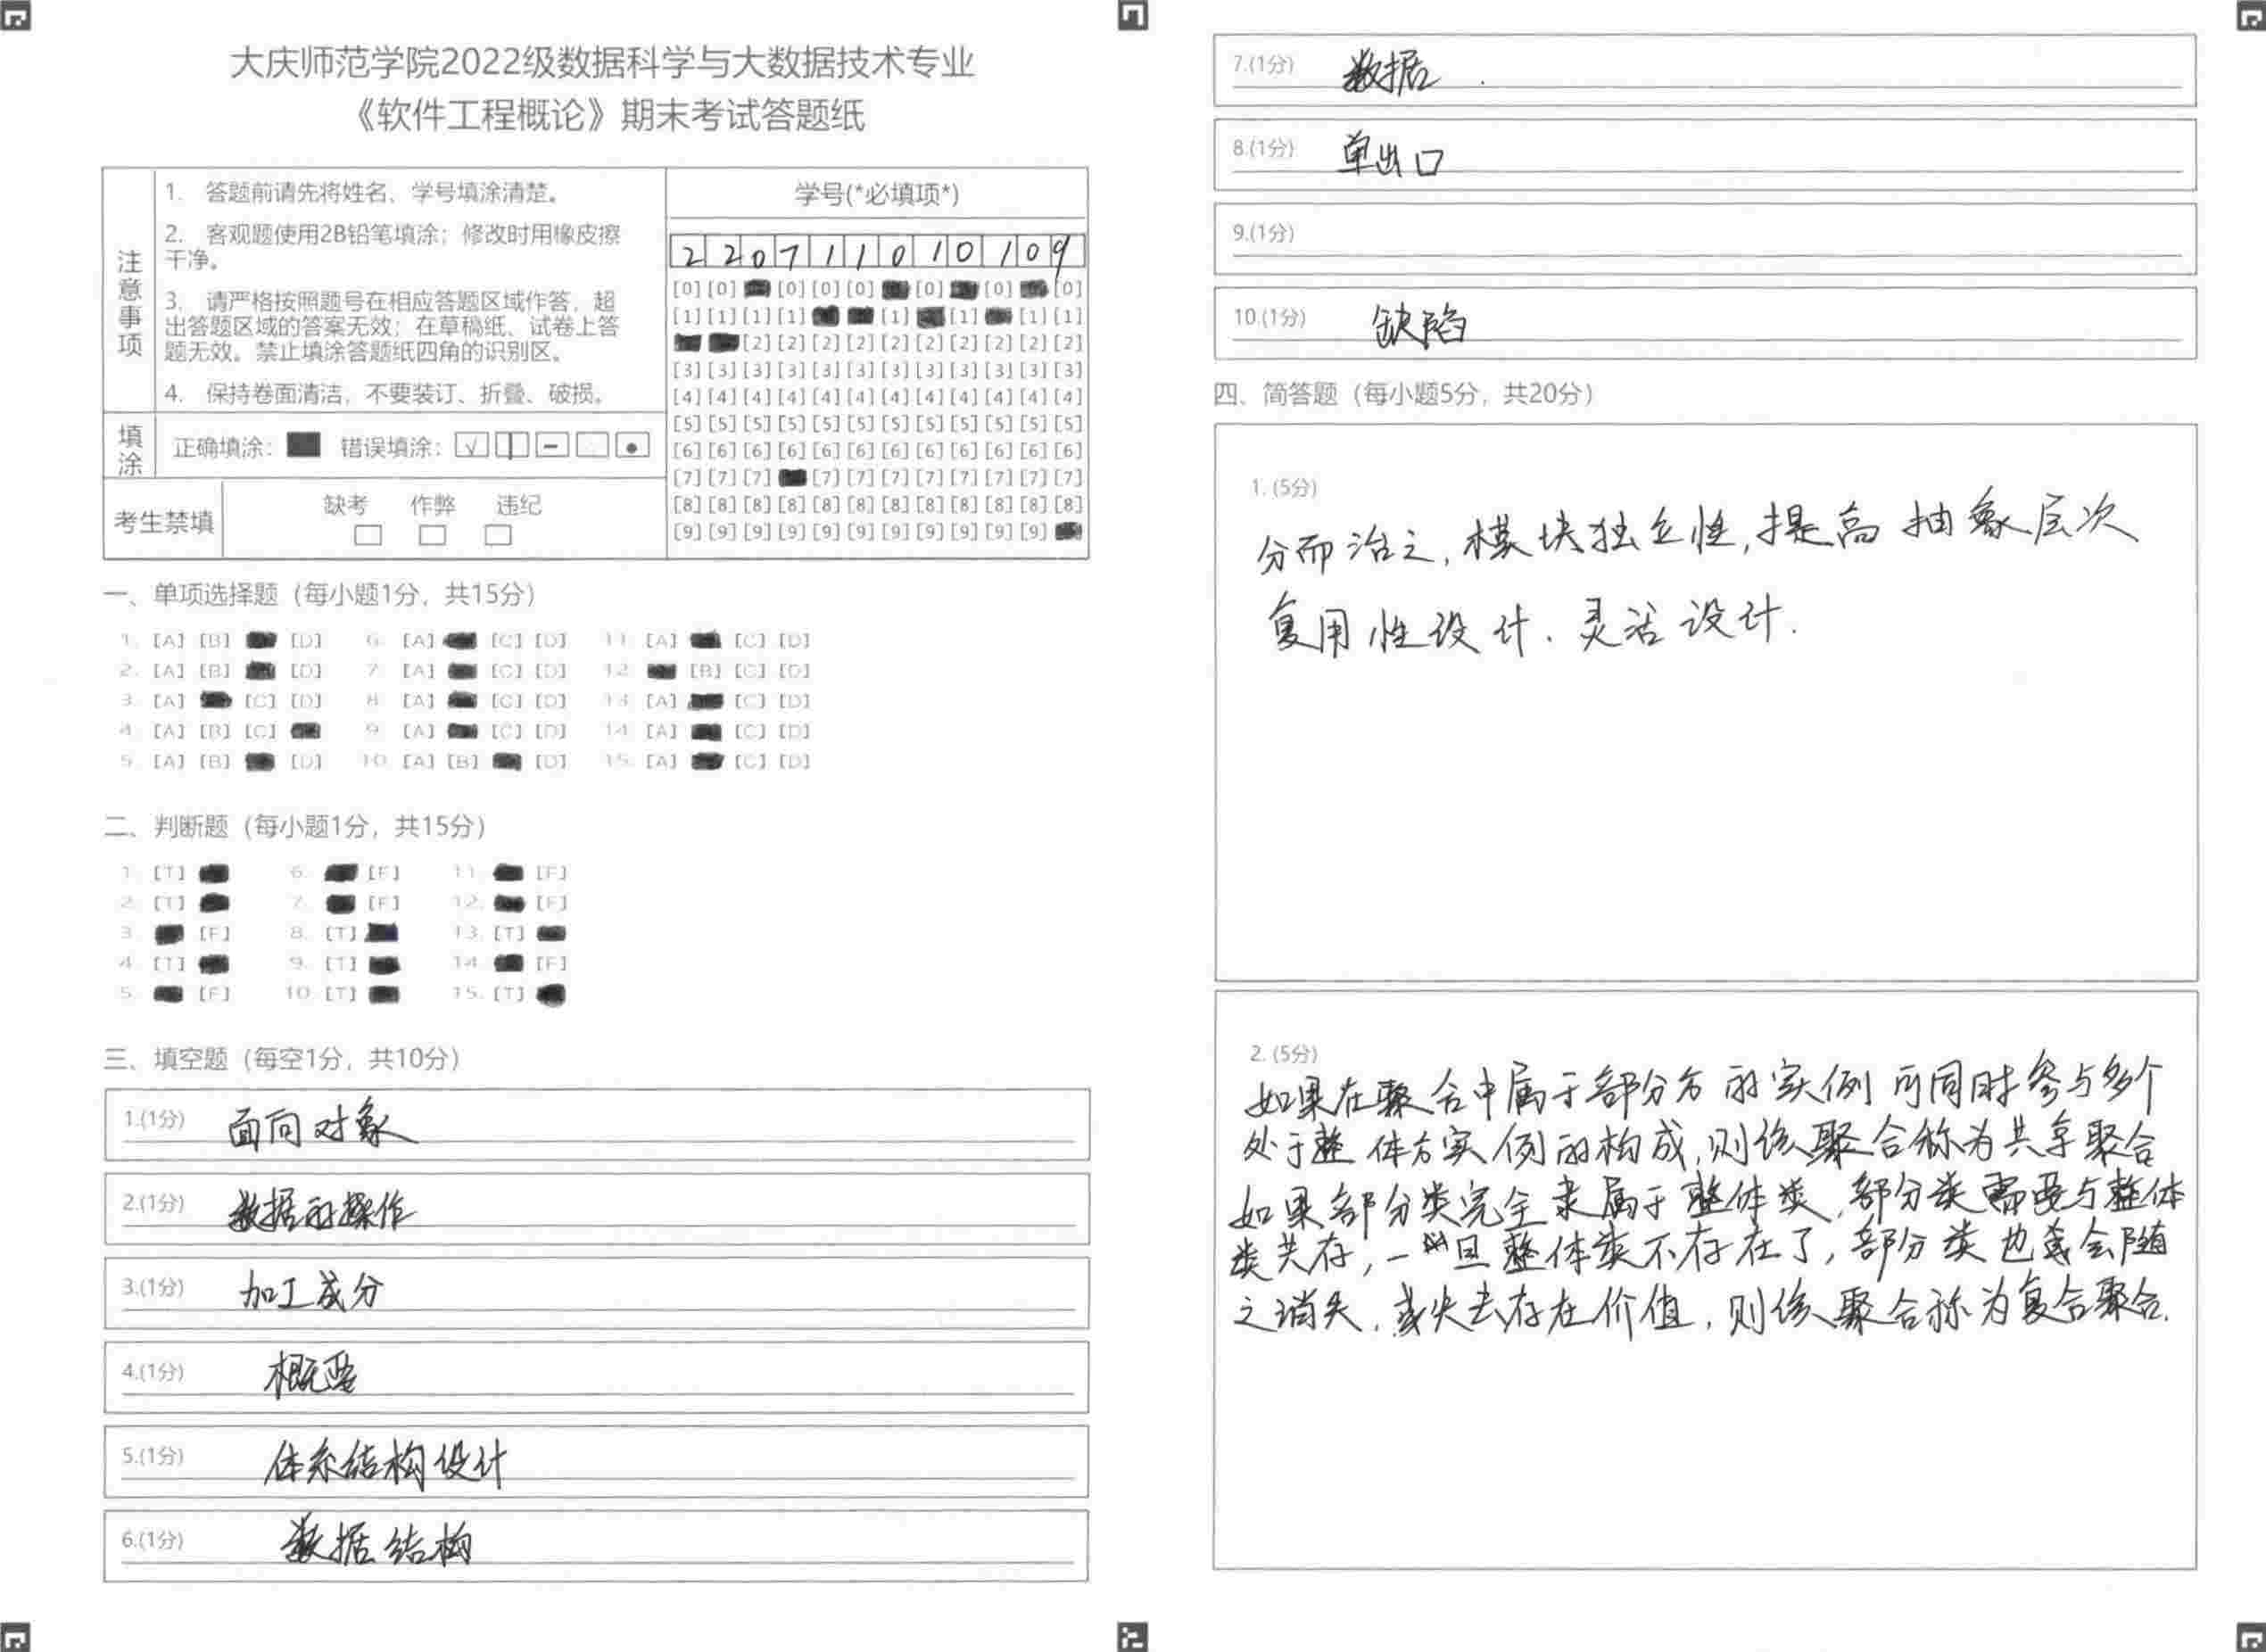 大庆师范学院2022级数据科学与大数据技术专业
《软件工程概论》期末考试答题纸
注意事项
1. 答题前请先将姓名、学号填涂清楚。
2. 客观题使用2B铅笔填涂；修改时用橡皮擦
干净。
3. 请严格按照题号在相应答题区域作答，超
出答题区域的答案无效；在草稿纸、试卷上答
题无效。禁止填涂答题纸四角的识别区。
4. 保持卷面清洁，不要装订、折叠、破损。
填涂
正确填涂： 错误填涂：
考生禁填
缺考 作弊 违纪
学号(*必填项*)
2 2 0 7 1 1 0 1 0 1 0 9
[0] [0] [0] [0] [0] [0] [0] [0]
[1] [1] [1] [1] [1] [1] [1] [1]
[2] [2] [2] [2] [2] [2] [2] [2] [2] [2]
[3] [3] [3] [3] [3] [3] [3] [3] [3] [3] [3] [3]
[4] [4] [4] [4] [4] [4] [4] [4] [4] [4] [4] [4]
[5] [5] [5] [5] [5] [5] [5] [5] [5] [5] [5] [5]
[6] [6] [6] [6] [6] [6] [6] [6] [6] [6] [6] [6]
[7] [7] [7] [7] [7] [7] [7] [7] [7] [7] [7]
[8] [8] [8] [8] [8] [8] [8] [8] [8] [8] [8] [8]
[9] [9] [9] [9] [9] [9] [9] [9] [9] [9] [9]
一、单项选择题（每小题1分，共15分）
1. [A] [B] [D] 6. [A] [C] [D] 11. [A] [C] [D]
2. [A] [B] [D] 7. [A] [C] [D] 12. [B] [C] [D]
3. [A] [C] [D] 8. [A] [C] [D] 13. [A] [C] [D]
4. [A] [B] [C] 9. [A] [C] [D] 14. [A] [C] [D]
5. [A] [B] [D] 10. [A] [B] [D] 15. [A] [C] [D]
二、判断题（每小题1分，共15分）
1. [T] 6. [F] 11. [F]
2. [T] 7. [F] 12. [F]
3. [F] 8. [T] 13. [T]
4. [T] 9. [T] 14. [F]
5. [F] 10. [T] 15. [T]
三、填空题（每空1分，共10分）
1.(1分) 面向对象
2.(1分) 数据的操作
3.(1分) 加工成分
4.(1分) 概要
5.(1分) 体系结构设计
6.(1分) 数据结构
7.(1分) 数据
8.(1分) 单出口
9.(1分)
10.(1分) 缺陷
四、简答题（每小题5分，共20分）
1. (5分)
分而治之，模块独立性，提高抽象层次
复用性设计．灵活设计．
2. (5分)
如果在聚合中属于部分方的实例可同时参与多个
处于整体方实例的构成，则该聚合称为共享聚合
如果部分类完全隶属于整体类，部分类需要与整体
类共存，一旦整体类不存在了，部分类也会随
之消失，或失去存在价值，则该聚合称为复合聚合．